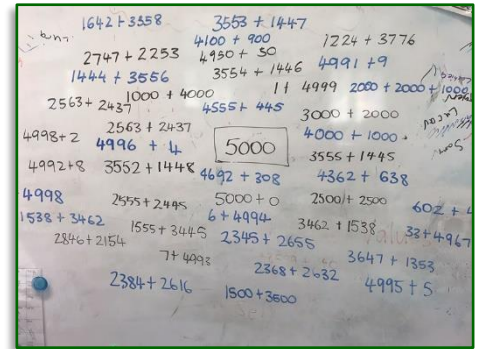 1642 + 3358
3553 + 1447
4100 + 900
1224 + 3776
2747 + 2253
4950 + 50
4991 + 9
1444 + 3556
3554 + 1446
1 + 4999
2000 + 2000 + 1000
1000 + 4000
2563 + 2437
4555 + 445
3000 + 2000
4998 + 2
2563 + 2437
4996 + 4
5000
4000 + 1000
3555 + 1445
4992 + 8
3552 + 1448
4692 + 308
4362 + 638
4998
2555 + 2445
5000 + 0
2500 + 2500
602 + 4
1538 + 3462
6 + 4994
1555 + 3445
3462 + 1538
33 + 4967
2846 + 2154
2345 + 2655
7 + 4993
3647 + 1353
2368 + 2632
2384 + 2616
4995 + 5
1500 + 3500